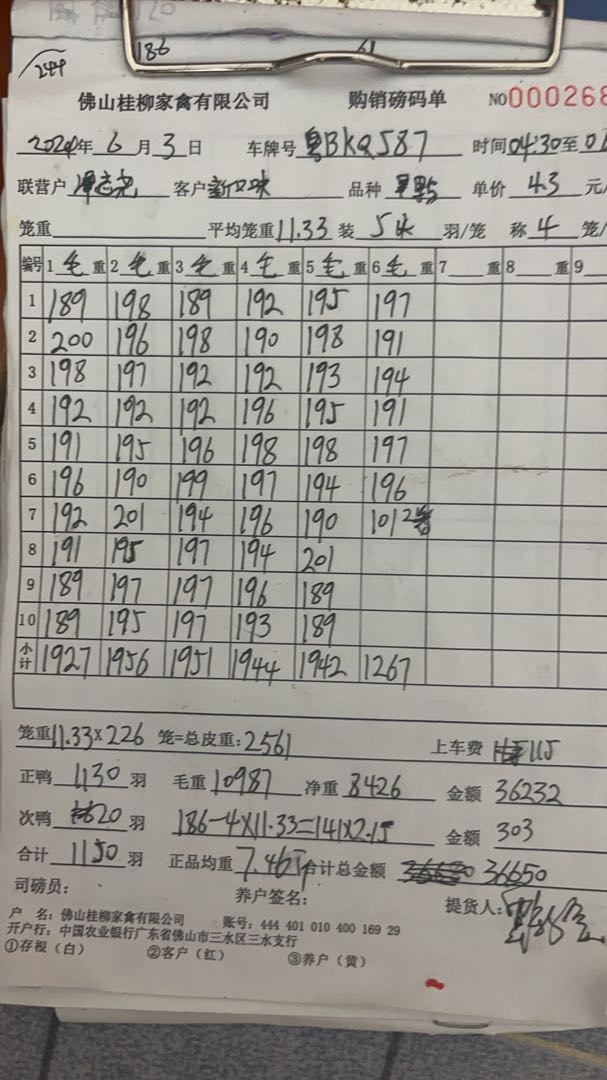 186
244
佛山桂柳家禽有限公司 购销磅码单 NO000268
2024年 6 月 3 日 车牌号 粤BKQ587 时间04:30至
联营户 客户 新口味 品种 单价 4.3 元/
笼重 平均笼重 11.33 装 5 羽/笼 称 4 笼/
编号 1 毛 重 2 毛 重 3 毛 重 4 毛 重 5 毛 重 6 毛 重 7 重 8 重 9
1 189 198 189 192 195 197
2 200 196 198 190 198 191
3 198 197 192 192 193 194
4 192 192 192 196 195 191
5 191 195 196 198 198 197
6 196 190 199 197 194 196
7 192 201 194 196 190 101 2
8 191 195 197 194 201
9 189 197 197 196 189
10 189 195 197 193 189
小计 1927 1956 1951 1944 1942 1267
笼重 11.33×226 笼=总皮重: 2561 上车费 115
正鸭 1130 羽 毛重 10987 净重 8426 金额 36232
次鸭 20 羽 186-4×11.33=141×2.15 金额 303
合计 1150 羽 正品均重 7.46斤 合计总金额 36650
司磅员: 养户签名: 提货人:
户 名: 佛山桂柳家禽有限公司 账号: 444 401 010 400 169 29
开户行: 中国农业银行广东省佛山市三水区三水支行
①存根(白) ②客户(红) ③养户(黄)